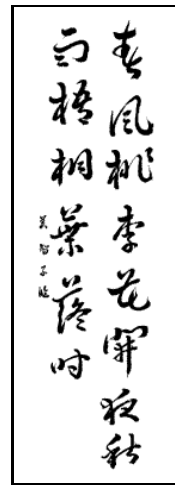 春風桃李花開夜秋
雨梧桐葉落時
美智子臨